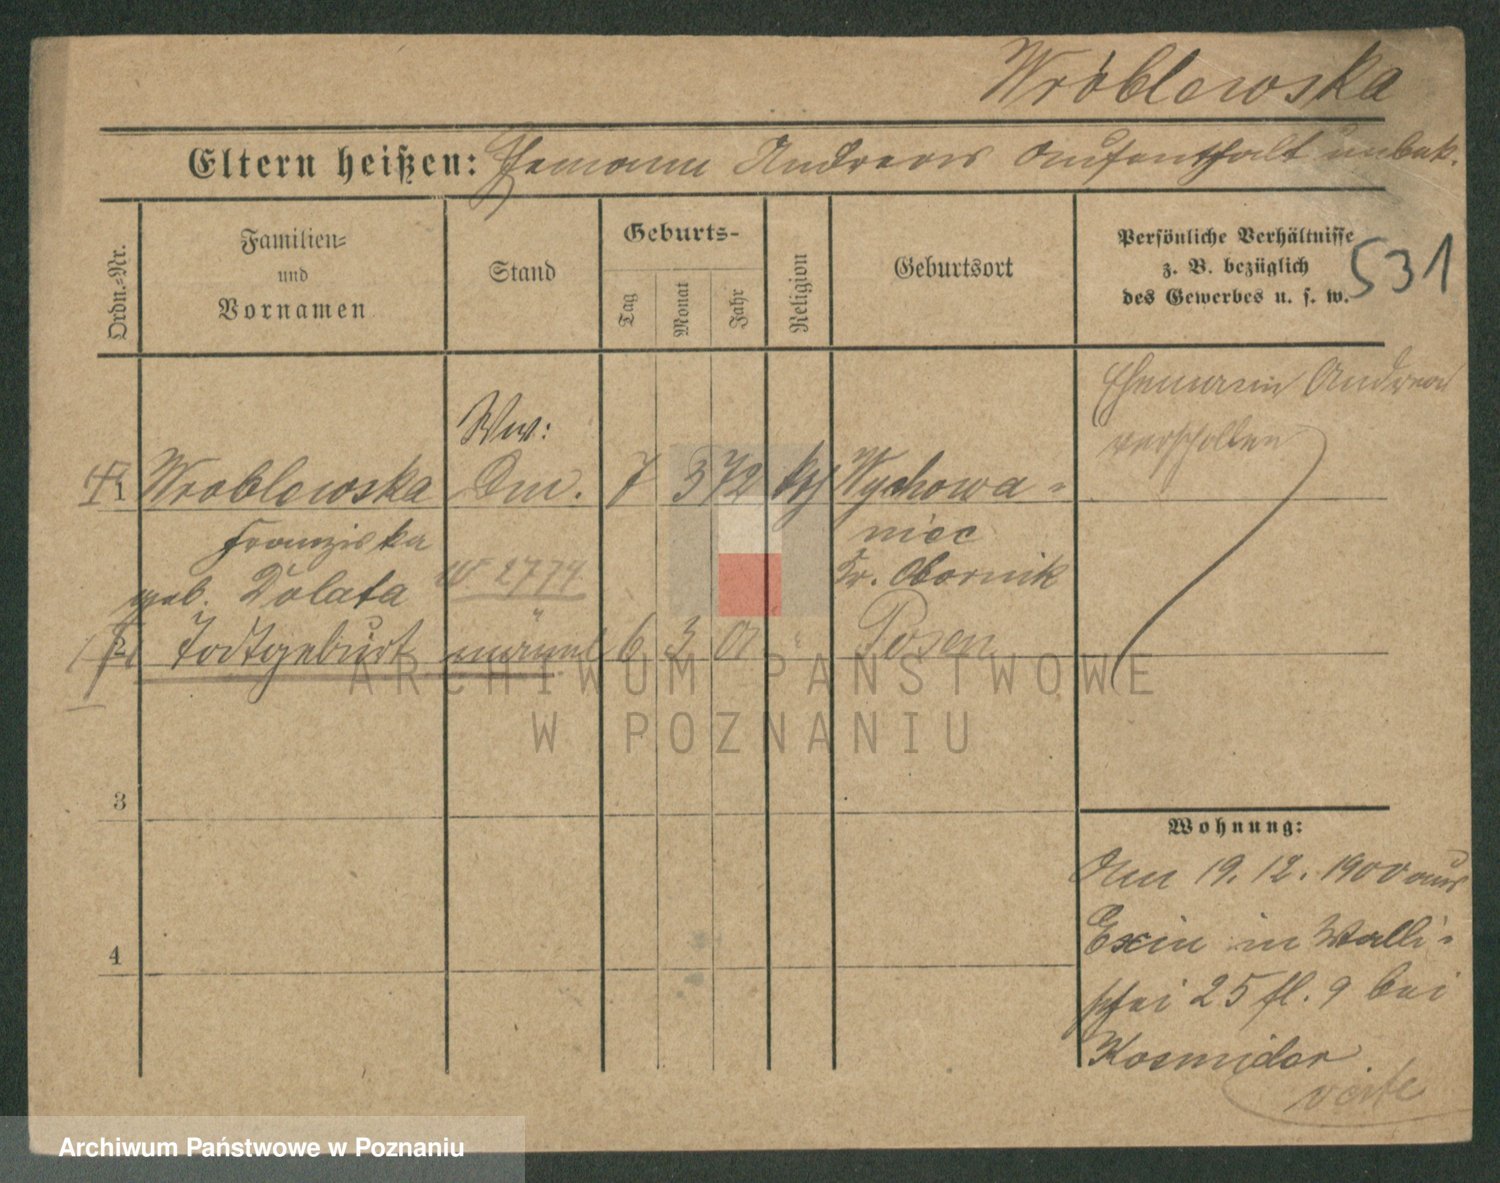 Wróblewska
Eltern heißen: Ehemann Andreas Aufenthalt unbek.
Ordn.-Nr.
Familien-
und
Vornamen
Stand
Geburts-
Tag
Monat
Jahr
Religion
Geburtsort
Persönliche Verhältnisse
z. B. bezüglich
des Gewerbes u. s. w.
531
Ehemann Andreas
verschollen
Ww:
1 Wroblewska 7 3 72 kth Wychowa-
Franziska niec
geb. Dolata W 2774 Kr. Obornik
2 Todtgeburt männl 6 3 01 " Posen
ARCHIWUM PAŃSTWOWE
W POZNANIU
3
4
Wohnung:
Am 19.12.1900 aus
Exin in Walli-
schei 25 fl. 9 bei
Kosmider
Archiwum Państwowe w Poznaniu